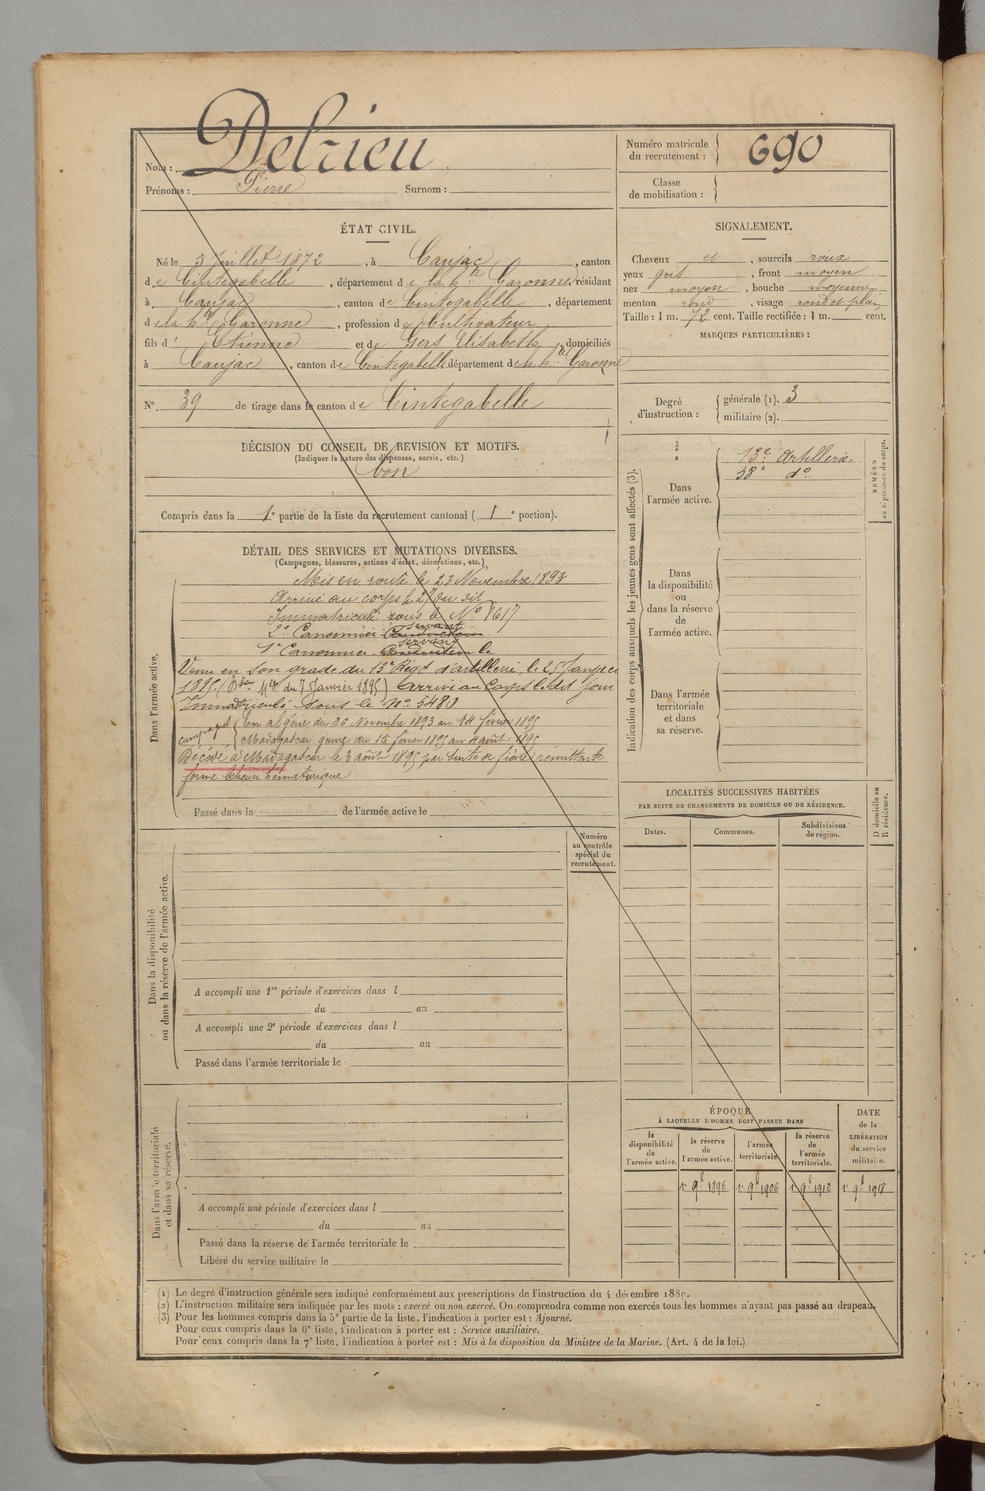 Nom : Delrieu
Prénoms : Pierre Surnom :
Numéro matricule du recrutement : 690
Classe de mobilisation :
ÉTAT CIVIL.
Né le 5 Juillet 1872, à Caujac, canton
de Cintegabelle, département de la Hte Garonne, résidant
à Caujac, canton de Cintegabelle, département
de la Hte Garonne, profession de Cultivateur
fils d' Etienne et de Gers Elisabeth, domiciliés
à Caujac, canton de Cintegabelle département de la Hte Garonne
N° 39 de tirage dans le canton de Cintegabelle
SIGNALEMENT.
Cheveux et, sourcils roux
yeux gris, front moyen
nez moyen, bouche moyenne
menton rond, visage rond et plat
Taille : 1 m. 72 cent. Taille rectifiée : 1 m. cent.
MARQUES PARTICULIÈRES :
Degré d'instruction : générale (1). 3
militaire (2).
DÉCISION DU CONSEIL DE REVISION ET MOTIFS.
(Indiquer la nature des dispenses, sursis, etc.)
bon
Compris dans la 1e partie de la liste du recrutement cantonal ( 1 e portion).
DÉTAIL DES SERVICES ET MUTATIONS DIVERSES.
(Campagnes, blessures, actions d'éclat, décorations, etc.)
Dans l'armée active.
Mis en route le 23 Novembre 1893
Arrivé au corps le 27 du dit
Immatriculé sous le N° 1617
servant
2e Canonnier Conducteur
servant
1er Canonnier Conducteur le
Venu en son grade du 13e Régt d'artillerie, le 25 Janvier
1895 ( Mlle du 7 Janvier 1895) Arrivé au Corps le dit jour
Immatriculé sous le n° 5480
campagnes en algérie du 26 Novembre 1893 au 14 février 1895
Madagascar guerre du 15 février 1895 au 4 août 1895
Décédé à Madagascar le 3 août 1895 par suite de fièvre rémittente
forme hématurique
Passé dans la de l'armée active le
Indication des corps auxquels les jeunes gens sont affectés (3).
Dans l'armée active.
13e Artillerie
38e do
NUMÉRO au répertoire du corps.
Dans la disponibilité ou dans la réserve de l'armée active.
Dans l'armée territoriale et dans sa réserve.
LOCALITÉS SUCCESSIVES HABITÉES
PAR SUITE DE CHANGEMENTS DE DOMICILE OU DE RÉSIDENCE.
Dates. Communes. Subdivisions de région.
D domicile ou R résidence.
Numéro au contrôle spécial du recrutement.
Dans la disponibilité ou dans la réserve de l'armée active.
A accompli une 1re période d'exercices dans l
du au
A accompli une 2e période d'exercices dans l
du au
Passé dans l'armée territoriale le
Dans l'armée territoriale et dans sa réserve.
A accompli une période d'exercices dans l
du au
Passé dans la réserve de l'armée territoriale le
Libéré du service militaire le
ÉPOQUE
À LAQUELLE L'HOMME DOIT PASSER DANS
la disponibilité de l'armée active.
la réserve de l'armée active.
l'armée territoriale.
la réserve de l'armée territoriale.
DATE de la LIBÉRATION du service militaire.
1r 9b 1896 1r 9b 1906 1r 9b 1912 1r 9b 1918
(1) Le degré d'instruction générale sera indiqué conformément aux prescriptions de l'instruction du 4 décembre 1889.
(2) L'instruction militaire sera indiquée par les mots : exercé ou non exercé. On comprendra comme non exercés tous les hommes n'ayant pas passé au drapeau.
(3) Pour les hommes compris dans la 5e partie de la liste, l'indication à porter est : Ajourné.
Pour ceux compris dans la 6e liste, l'indication à porter est : Service auxiliaire.
Pour ceux compris dans la 7e liste, l'indication à porter est : Mis à la disposition du Ministre de la Marine. (Art. 4 de la loi.)